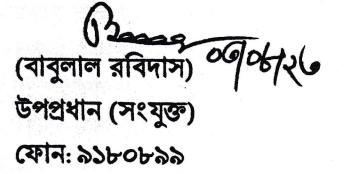 ০৩/০৮/২৬
(বাবুলাল রবিদাস)
উপপ্রধান (সংযুক্ত)
ফোন: ৯১৮০৮৯৯